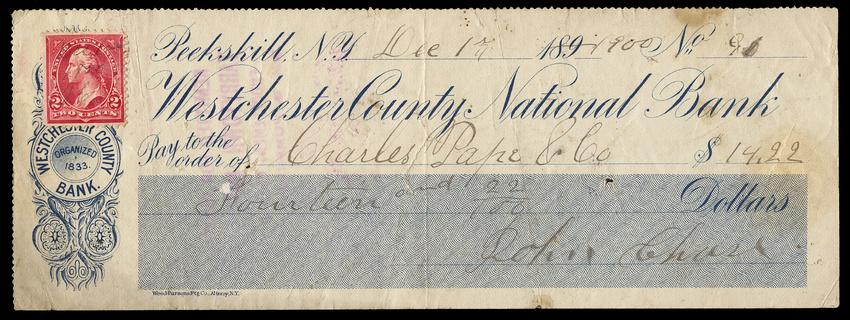 UNITED STATES POSTAGE
2 2
TWO CENTS
WESTCHESTER COUNTY
ORGANIZED
1833.
BANK.
Peekskill, N.Y. Dec 17 189 1900 No. 31
Westchester County National Bank
Pay to the order of Charles Pape & Co $ 14.22
Fourteen and 22/100 Dollars
John Chase
Weed-Parsons Ptg Co., Albany, N.Y.